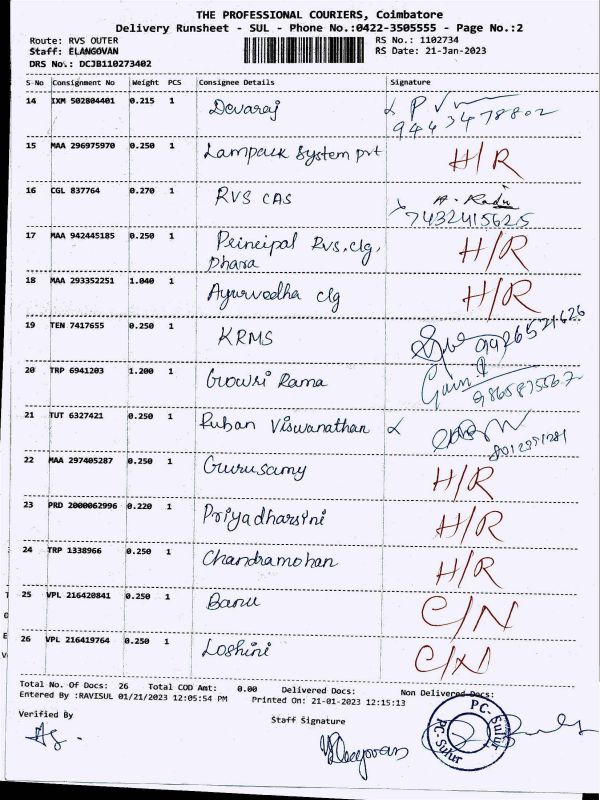 THE PROFESSIONAL COURIERS, Coimbatore
Delivery Runsheet - SUL - Phone No.:0422-3505555 - Page No.:2
Route: RVS OUTER RS No.: 1102734
Staff: ELANGOVAN RS Date: 21-Jan-2023
DRS No.: DCJB110273402
S No Consignment No Weight PCS Consignee Details Signature
14 IXM 502804401 0.215 1 Devaraj
9443478802
15 MAA 296975970 0.250 1 Lampack System pvt H/R
16 CGL 837764 0.270 1 RVS CAS
7432415625
17 MAA 942445185 0.250 1 Peincipal RVS.clg, H/R
Dhara
18 MAA 293352251 1.040 1 Ayurvedha clg H/R
19 TEN 7417655 0.250 1 KRMS 9926521626
20 TRP 6941203 1.200 1 Gowri Rama
21 TUT 6327421 0.250 1 Ruban Viswanathan
22 MAA 297405287 0.250 1 Gurusamy H/R
23 PRD 2000062996 0.220 1 Priyadharsini H/R
24 TRP 1338966 0.250 1 Chandramohan H/R
25 VPL 216420841 0.250 1 Banu C/N
26 VPL 216419764 0.250 1 Loshini C/N
Total No. Of Docs: 26 Total COD Amt: 0.00 Delivered Docs: Non Delivered Docs:
Entered By :RAVISUL 01/21/2023 12:05:54 PM Printed On: 21-01-2023 12:15:13
Verified By Staff Signature
PC-Sulur
PC-Sulur